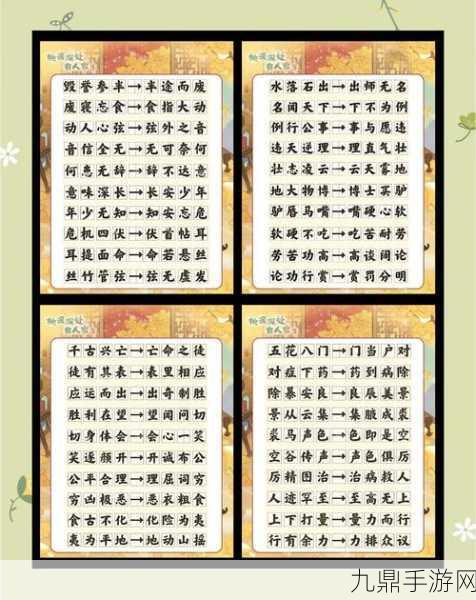 桃溪深处
有人家
毁誉参半→半途而废
废寝忘食→食指大动
动人心弦→弦外之音
音信全无→无可奈何
何患无辞→辞不达意
意味深长→长安少年
年少无知→知安忘危
危机四伏→伏首帖耳
耳提面命→命若悬丝
丝竹管弦→弦无虚发
桃溪深处
有人家
水落石出→出师无名
名闻天下→下不为例
例行公事→事与愿违
违天逆理→理直气壮
壮志凌云→云天雾地
地大物博→博士买驴
驴唇马嘴→嘴硬心软
软硬不吃→吃苦耐劳
劳苦功高→高谈阔论
论功行赏→赏罚分明
桃溪深处
有人家
千古兴亡→亡命之徒
徒有其表→表里相应
应运而出→出奇制胜
胜利在望→望闻问切
切身体会→会心一笑
笑逐颜开→开诚布公
公平合理→理屈词穷
穷凶极恶→恶衣粗食
食古不化→化险为夷
夷为平地→地动山摇
桃溪深处
有人家
五花八门→门当户对
对症下药→药到病除
除暴安良→良辰美景
景从云集→集腋成裘
裘马声色→色即是空
空谷传声→声色俱厉
厉精图治→治病救人
人迹罕至→至高无上
上下打量→量力而行
行有余力→力排众议
九鼎手游网